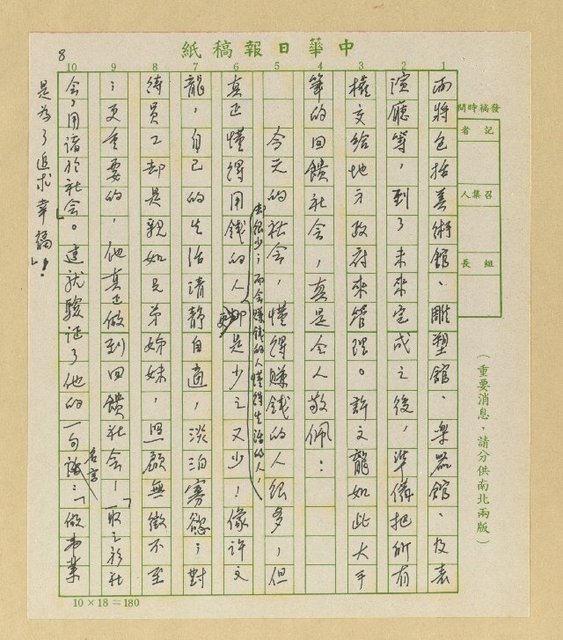 中華日報稿紙
8
1 2 3 4 5 6 7 8 9 10
發稿時間
記者
召集人
組長
(重要消息,請分供南北兩版)
而將包括美術館、雕塑館、樂器館、及表
演廳等,到了未來完成之後,準備把所有
權交給地方政府來管理。許文龍如此大手
筆的回饋社會,真是令人敬佩:
今天的社會,懂得賺錢的人很多,但
真正懂得用錢的人
卻很少;而會賺錢的人懂得生活的人,
更是少之又少!像許文
龍,自己的生活清靜自適,淡泊寡慾;對
待員工却是親如兄弟姊妹,照顧無微不至
;更重要的,他真正做到回饋社會!「取之於社
會,用諸於社會」。這就驗證了他的一句
名言
:「做事業
是為了追求幸福」!
10×18=180